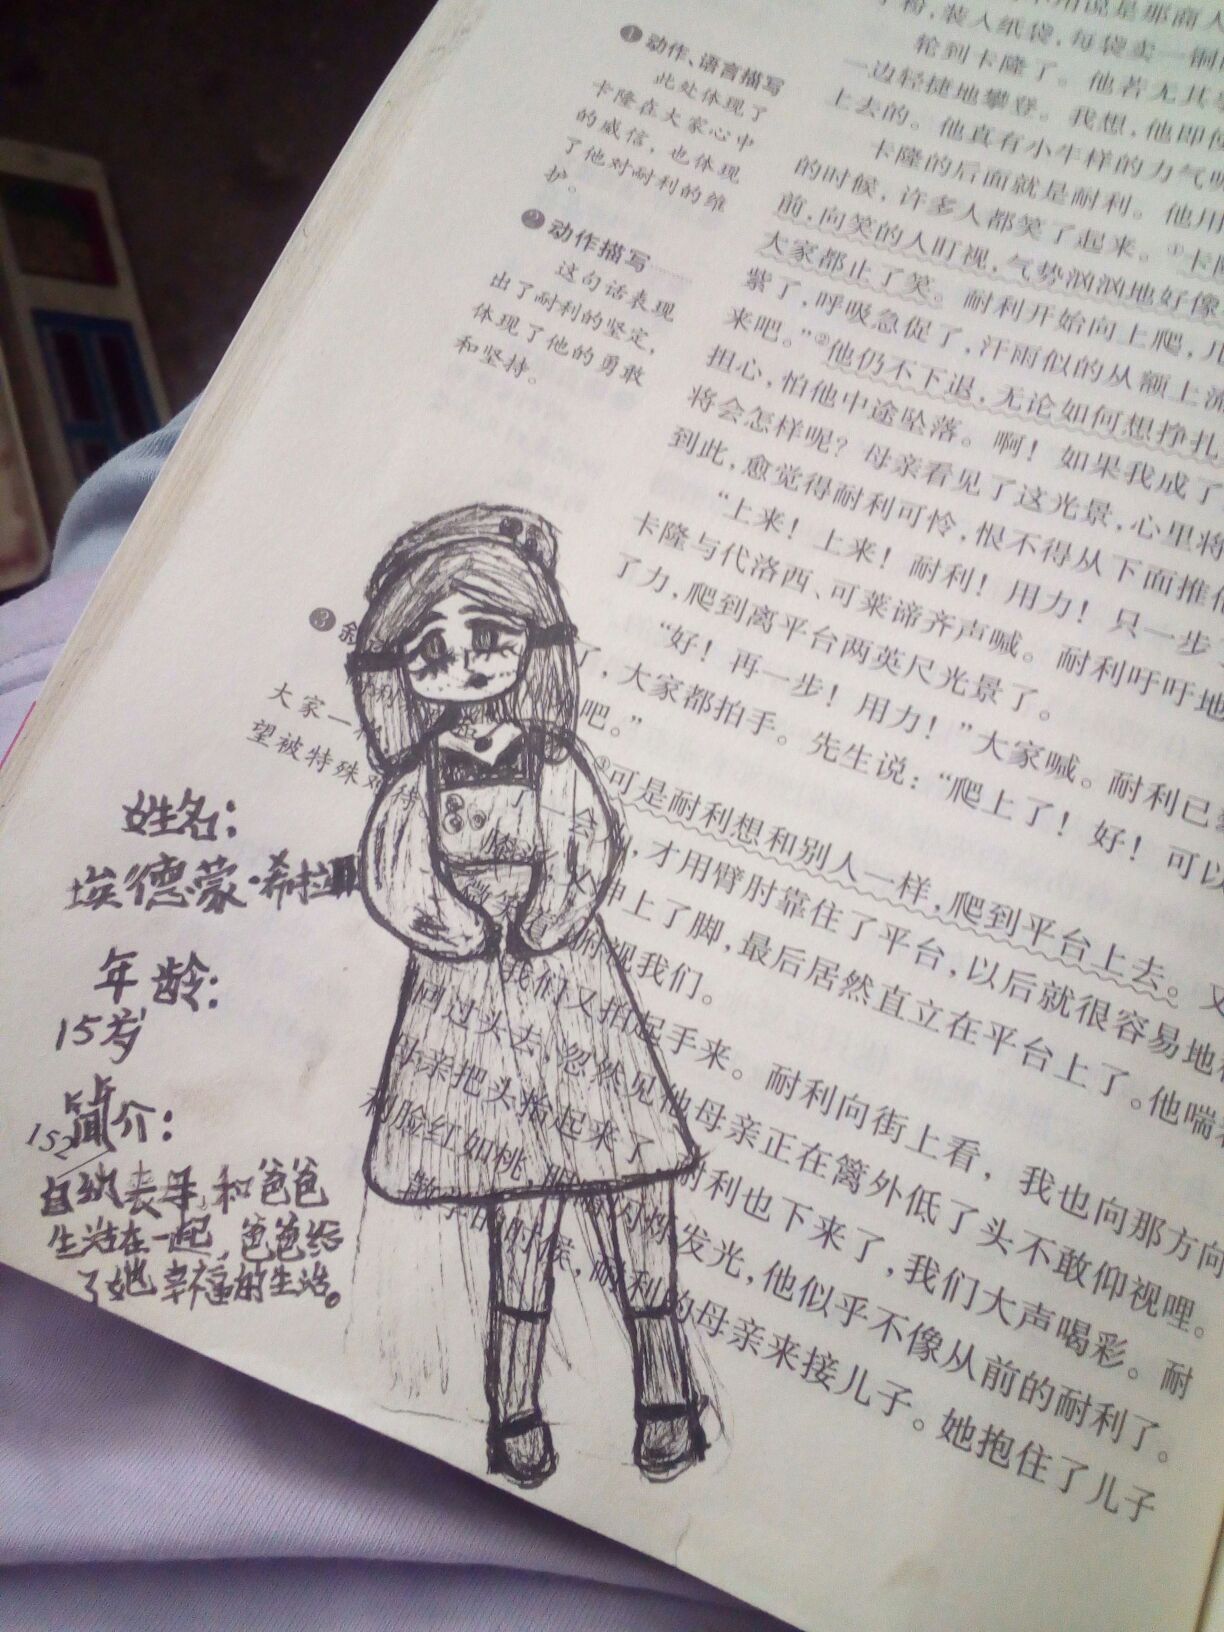 ❶动作、语言描写
此处体现了
卡隆在大家心中
的威信，也体现
了他对耐利的维
护。
❷动作描写
这句话表现
出了耐利的坚定，
体现了他的勇敢
和坚持。
❸
大家一
望被特殊对待
姓名：
埃德蒙·希拉
年龄：
15岁
简介：
152
自幼丧母，和爸爸
生活在一起，爸爸给
了她幸福的生活。
说是那商人
粉，装入纸袋，每袋卖一铜
轮到卡隆了。他若无其
一边轻捷地攀登。我想，他即使
上去的。他真有小牛样的力气
卡隆的后面就是耐利。他用
的时候，许多人都笑了起来。①卡隆
前，向笑的人盯视，气势汹汹地好像
大家都止了笑。耐利开始向上爬，几
紫了，呼吸急促了，汗雨似的从额上流
来吧。”②他仍不下退，无论如何想挣扎
担心，怕他中途坠落。啊！如果我成了
将会怎样呢？母亲看见了这光景，心里将
到此，愈觉得耐利可怜，恨不得从下面推他
“上来！上来！耐利！用力！只一步了
卡隆与代洛西、可莱谛齐声喊。耐利吁吁地
了力，爬到离平台两英尺光景了。
“好！再一步！用力！”大家喊。耐利已
了，大家都拍手。先生说：“爬上了！好！可以
吧。”
③可是耐利想和别人一样，爬到平台上去。又
一会儿，才用臂肘靠住了平台，以后就很容易地
伸上了脚，最后居然直立在平台上了。他喘
微笑着，俯视我们。
我们又拍起手来。耐利向街上看，我也向那方向
回过头去，忽然见他母亲正在篱外低了头不敢仰视哩。
母亲把头抬起来了，耐利也下来了，我们大声喝彩。耐
利脸红如桃，眼睛闪烁发光，他似乎不像从前的耐利了。
散学的时候，耐利的母亲来接儿子。她抱住了儿子